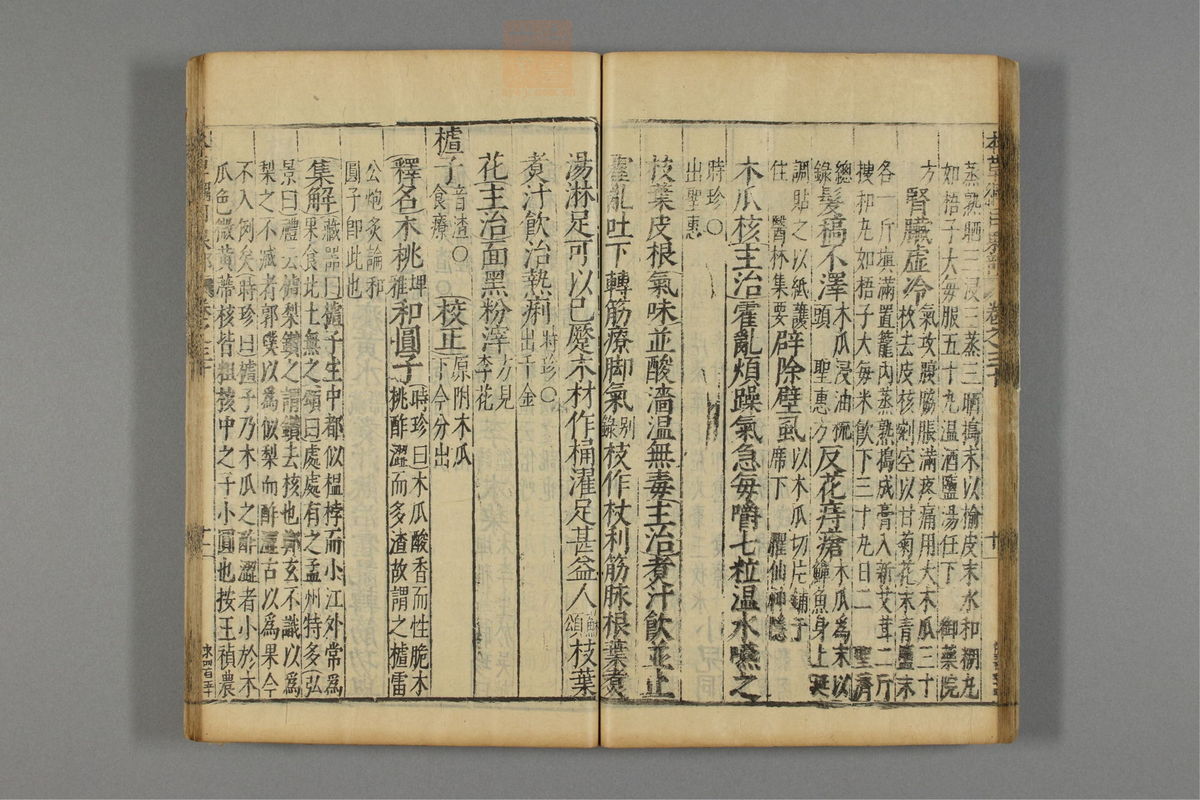 蒸熟晒三浸三蒸三晒搗末以榆皮末水和糊丸
如梧子大每服五十丸溫酒鹽湯任下 御藥院
方 腎臟虛冷 氣攻腹脇脹滿疼痛用大木瓜三十
枚去皮核剜空以甘菊花末青鹽末
各一斤填滿置籠內蒸熟搗成膏入新艾茸二斤
搜和丸如梧子大每米飲下三十丸日二 聖濟
總 髮槁不澤 木瓜浸油梳頭 聖惠方 反花痔瘡 木瓜為末以
錄 鱓魚身上涎
調貼之以紙護
住 醫林集要 辟除壁虱 以木瓜切片鋪于
席下 臞仙神隱
木瓜核主治霍亂煩躁氣急每嚼七粒溫水嚥之
時珍○
出聖惠
枝葉皮根氣味並酸濇溫無毒主治煮汁飲並止
霍亂吐下轉筋療脚氣 別錄 枝作杖利筋脉根葉煮
湯淋足可以已蹷木材作桶濯足甚益人 蘇頌 枝葉
煮汁飲治熱痢 時珍○出千金
花主治面黑粉滓 方見李花
樝子 音渣○食療
校正 原附木瓜下今分出
釋名木桃 埤雅 和圓子 時珍曰木瓜酸香而性脆木
桃酢澀而多渣故謂之樝雷
公炮炙論和
圓子即此也
集解 藏器曰樝子生中都似榅桲而小江外常為
果食北土無之頌曰處處有之孟州特多弘
景曰禮云樝梨鑽之謂鑽去核也鄭玄不識以為
梨之不臧者郭璞以為似梨而酢澀古以為果今
不入例矣時珍曰樝子乃木瓜之酢澀者小於木
瓜色微黃蒂核皆粗核中之子小圓也按王禎農